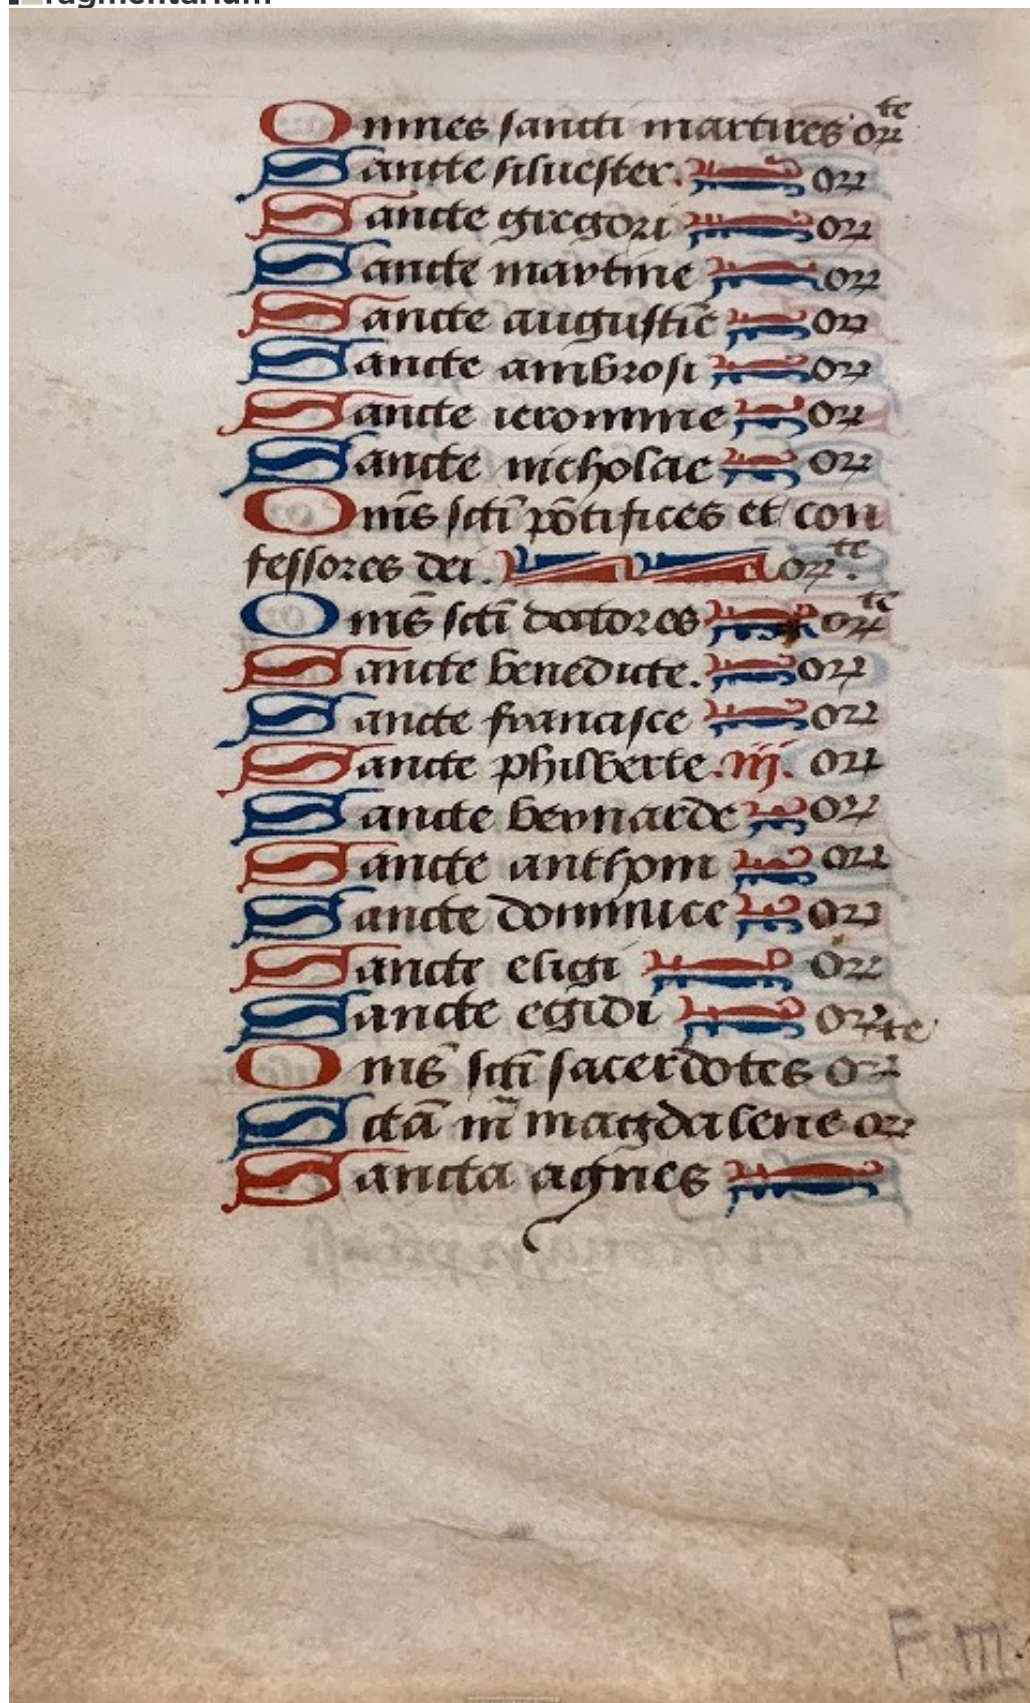 Omnes sancti martires orate
Sancte siluester. or
Sancte gregori or
Sancte martine or
Sancte augustīe or
Sancte ambrosi or
Sancte ieronime or
Sancte nicholae or
Om̄s sctī pōtifices et con
fessores dei. orte.
Om̄s sctī doctores orte
Sancte benedicte. or
Sancte francisce or
Sancte philberte .iij. or
Sancte bernarde or
Sancte anthoni or
Sancte dominice or
Sancte eligi or
Sancte egidi or
Om̄s sctī sacerdotes orte
Sctā m̄ magdalene or
Sancta agnes